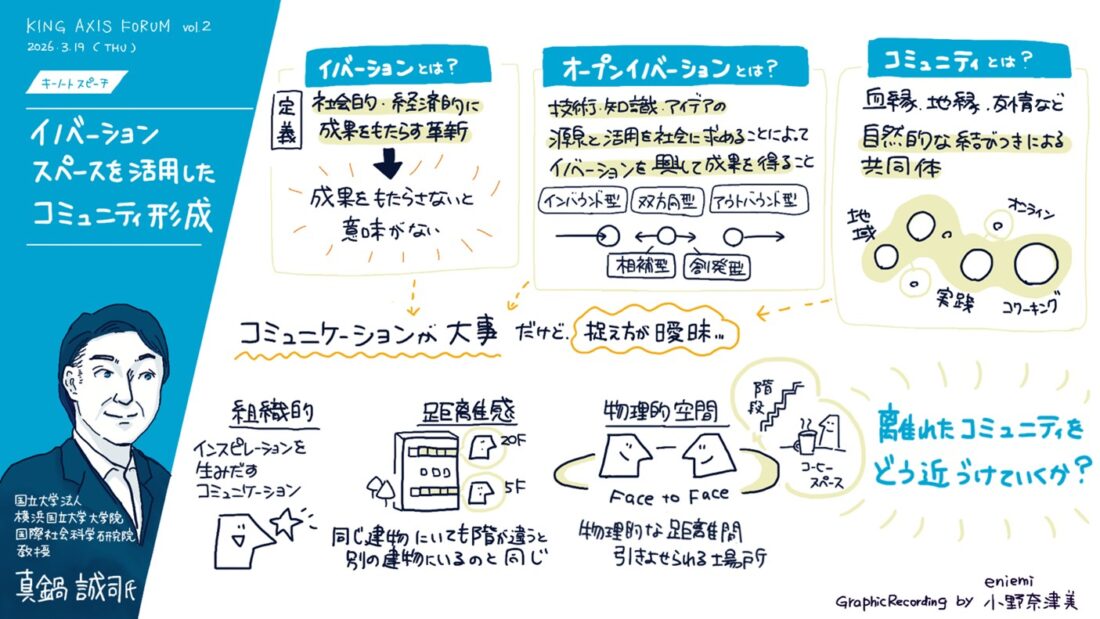 KING AXIS FORUM vol.2
2026.3.19 (THU)
キーノートスピーチ
イノベーション
スペースを活用した
コミュニティ形成
国立大学法人
横浜国立大学大学院
国際社会科学研究院
教授
真鍋 誠司氏
イノベーションとは?
定義
社会的・経済的に
成果をもたらす革新
成果をもたらさないと
意味がない
オープンイノベーションとは?
技術・知識・アイデアの
源泉と活用を社会に求めることによって
イノベーションを興して成果を得ること
インバウンド型
双方向型
アウトバウンド型
相補型
創発型
コミュニティとは?
血縁、地縁、友情など
自然的な結びつきによる
共同体
地域
オンライン
実践
コワーキング
コミュニケーションが大事だけど、捉え方が曖昧…
組織的
インスピレーションを
生みだす
コミュニケーション
距離感
20F
5F
同じ建物にいても階が違うと
別の建物にいるのと同じ
物理的空間
Face to Face
物理的な距離間
引きよせられる場所
階段
コーヒー
スペース
離れたコミュニティを
どう近づけていくか?
eniemi
GraphicRecording by 小野奈津美